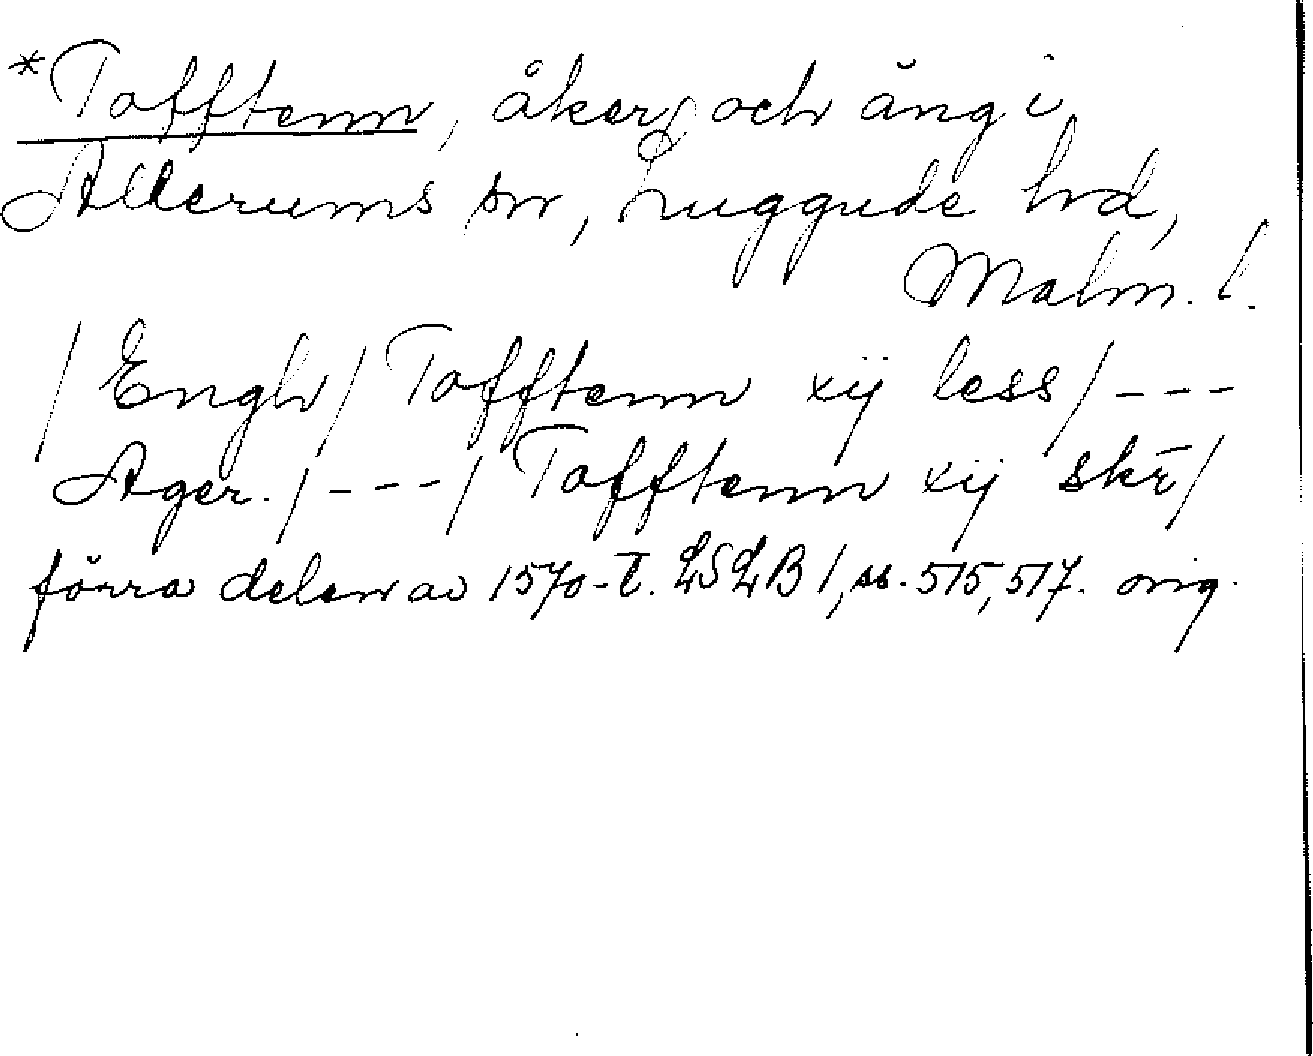 *Tofftenn, åker och äng i
Allerums sn, Luggude hd,
Malm. l.
/Engh/ Tofftenn xij less/ ---
Ager. / --- / Tofftenn xij skr̄/
förra delen av 1570-t. LSLB 1, ss. 515, 517. orig.